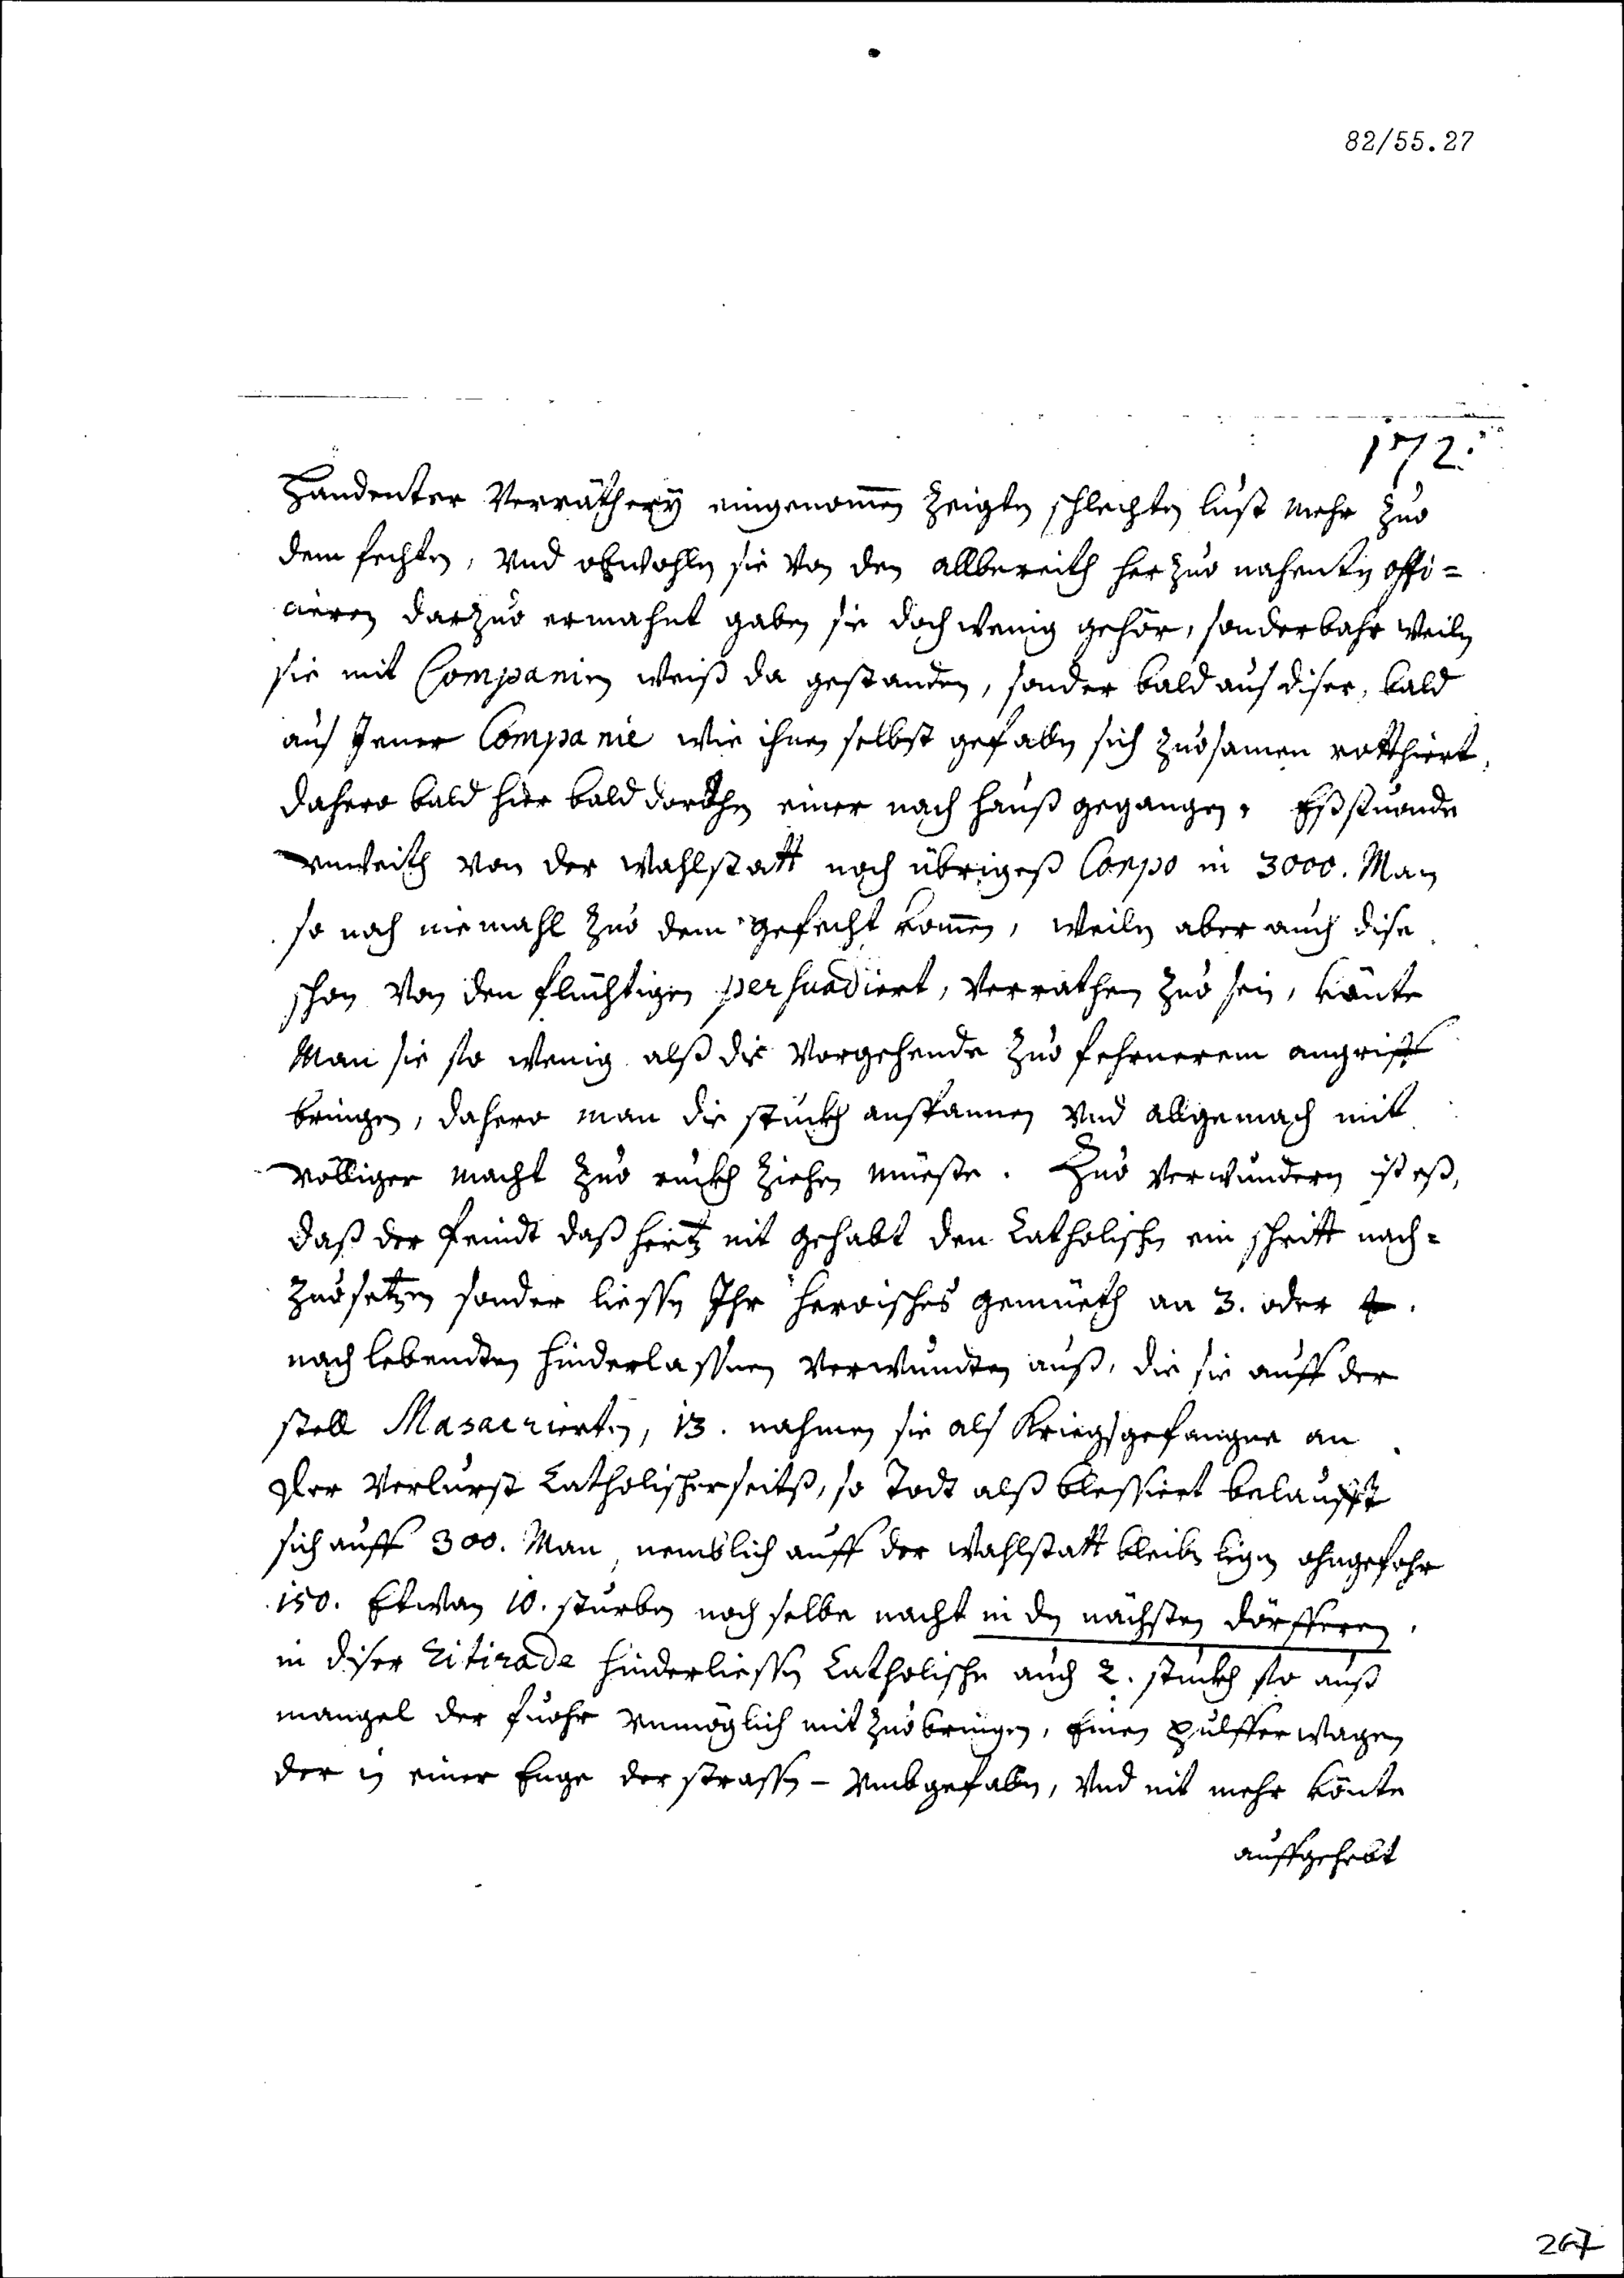 82/55.27
172.
handenter Verräthery eingenomen zeigten schlechten lust mehr zuo
dem fechten, Vnd obwohlen sie Von den allbereith herzuo nahenten offi=
cieren darzuo ermahnt gaben sie doch wenig gehör, sonderbahr weilen
sie mit Companien weiß da gestanden, sonder bald aus diser, bald
aus Jener Companie wie ihnen selbst gefallen sich zuosamen rotthiert,
dahero bald hier bald dorthen einer nach hauß gegangen. Eß stuonde
vnweith von der wahlstatt noch übrigeß Corpo in 3000. Man
so noch niemahl zuo dem gefecht komen, weilen aber auch dise
schon Von den flüchtigen persuadiert, verrathen zuo sein, könte
Man sie so wenig alß die Vorgehende zuo fehrnerem angriff
bringen, dahero man die stuckh anspannen Vnd allgemach mit
völliger macht zuo ruckh ziehen müeste. Zuo verwundern ist eß,
daß der feindt daß hertz nit gehabt den Catholischen ein schritt nach=
zuosetzen sonder liessen Ihr heroisches gemüeth an 3. oder 4.
noch lebendten hinderlassnen verwundten auß, die sie auff der
stell Masacrierten, 13. nahmen sie als Kriegsgefangne an
Der Verlurst Catholischerseitß, so Todt alß blessiert belaufft
sich auff 300. Man, nemblich auff der wahlstatt bleiben ligen ohngefohr
150. Etwan 10. sturben noch selbe nacht in den nächsten dörfferen,
in diser Ritirade hinderliessen Catholische auch 2. stuckh so auß
mangel der fuohr vnmöglich mit zuobringen, Einen pulffer wagen
der in einer Enge der strassen - vmbgefallen, Vnd nit mehr könte
auffgehebt
267